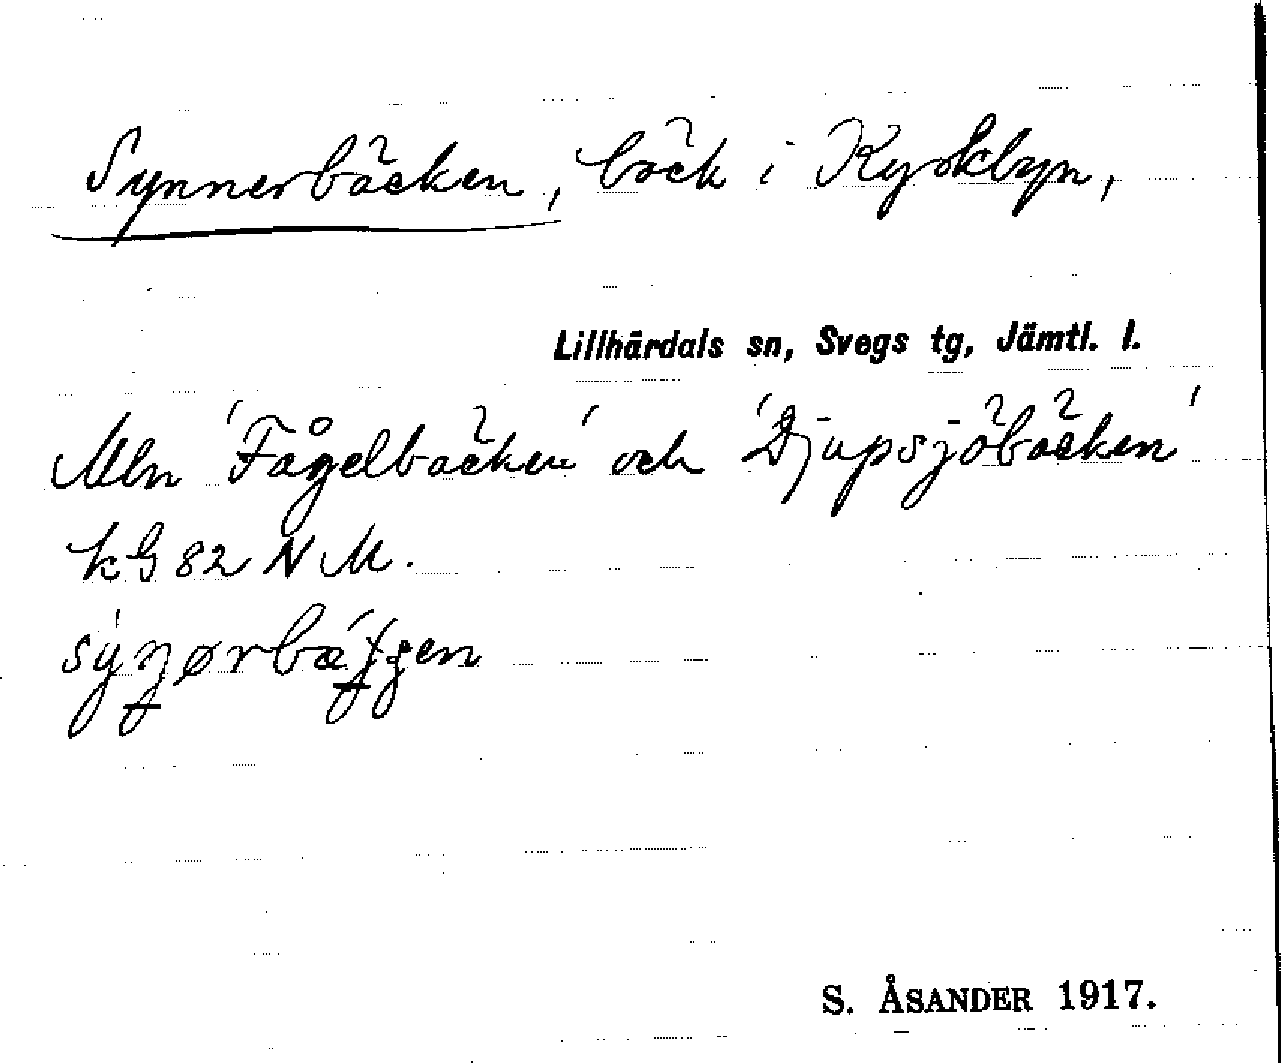 Synnerbäcken, bäck i Kyrkbyn,
Lillhärdals sn, Svegs tg, Jämtl. l.
Mln 'Fågelbäcken' och 'Djupsjöbäcken'
kG 82 N M.
S. ÅSANDER 1917.